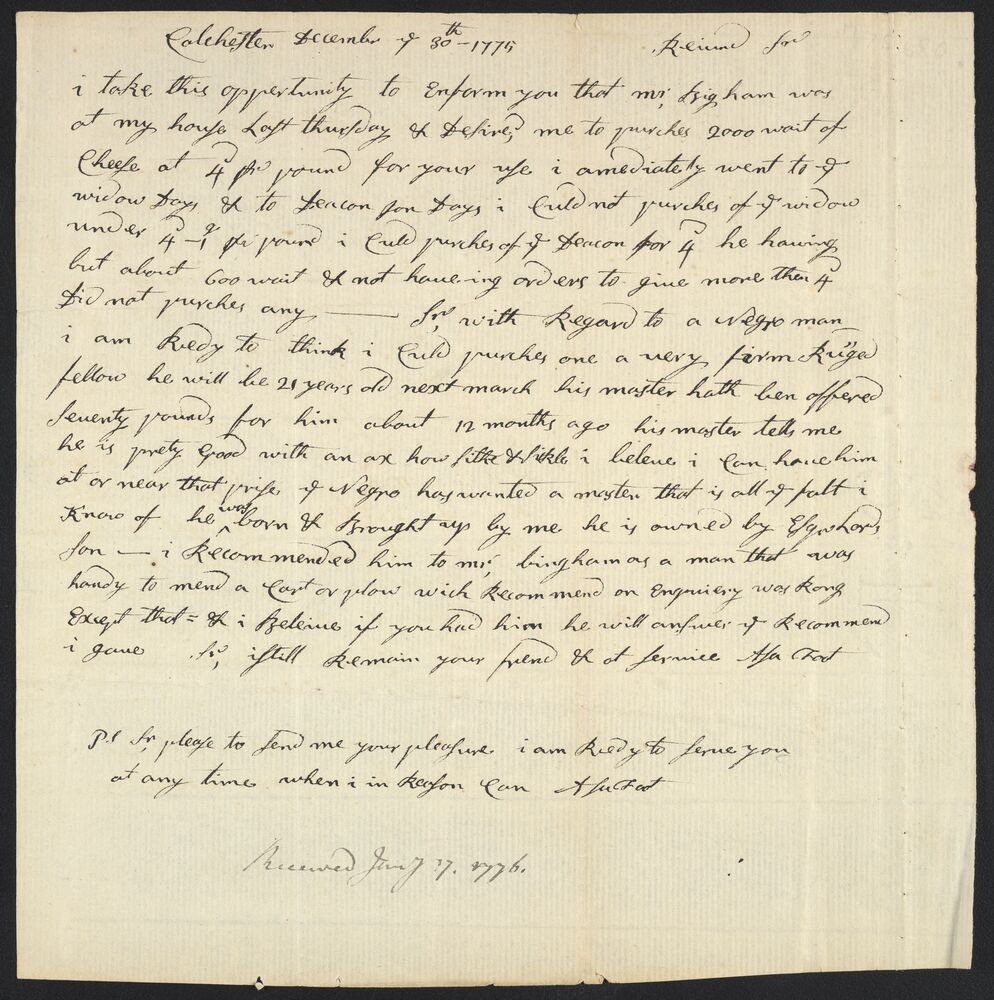 Colchester December ye 30th - 1775 Reiund Sr
i take this oppertunity to Enform you that mr, Bigham was
at my house Last thursday & Desired me to purches 2000 wait of
Cheese at 4d pr pound for your use i amediately went to ye
widow Days & to Deacon Jon Days i Culd not purches of ye widow
under 4d-1q pr pound i Culd purches of ye Deacon for 4d he having
but about 600 wait & not have-ing orders to give more then 4d
Did not purches any — Sr, with Regard to a Negro man
i am Redy to think i Culd purches one a very firm Ruged
fellow he will be 21 years old next march his master hath ben offered
Seventy pounds for him about 12 months ago his master tells me
he is prety Good with an ax how sithe & Sikle i beleve i Can have him
at or near that prise ye Negro has wanted a master that is all ye falt i
Know of he was born & Brought up by me he is owned by Esqr Lords
Son — i Recommended him to mr, bingham as a man that was
handy to mend a Cart or plow wich Recommend on Enquiery was Rong
Except that = & i Beleive if you had him he will answer ye Recommend
i gave Sr, i still Remain your frend & at Service Asa Foot
PS Sr, please to Send me your pleasure i am Redy to serve you
at any time when i in Reason Can Asa Foot
Received Jany 17. 1776.